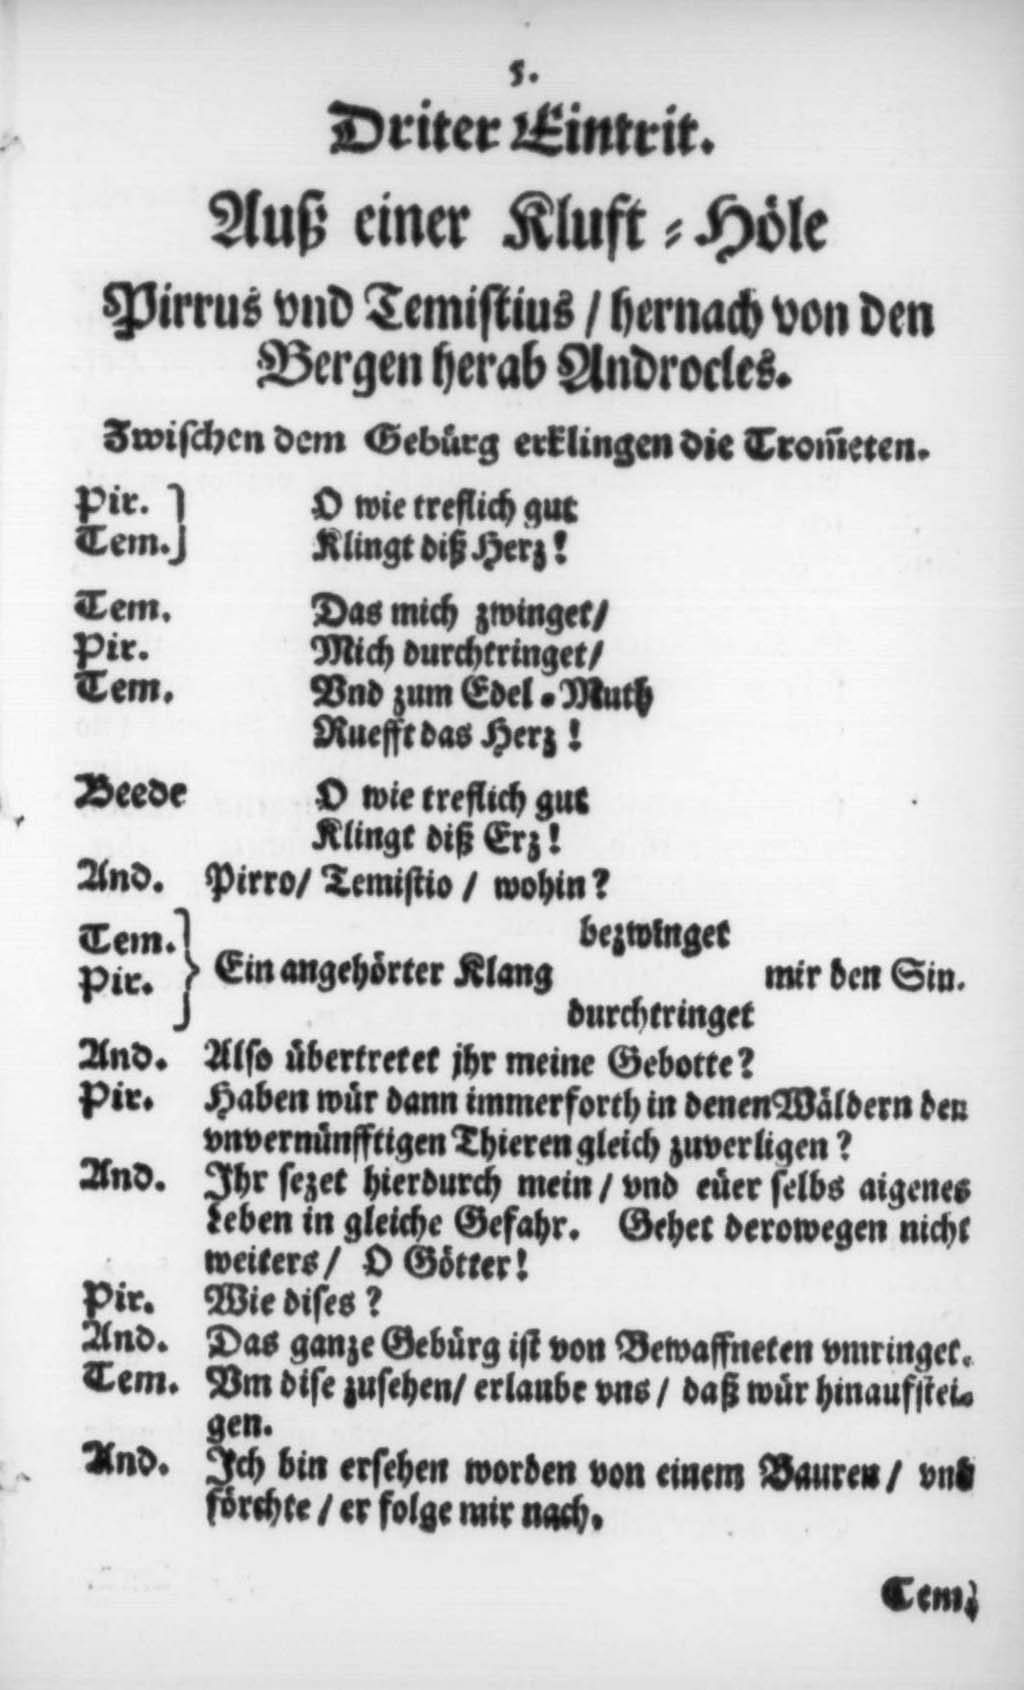 5.
Driter Eintrit.
Auß einer Kluft-Höle
Pirrus vnd Temistius / hernach von den
Bergen herab Androcles.
Zwischen dem Gebürg erklingen die Trom̄eten.
Pir. } O wie treflich gut
Tem. } Klingt diß Herz!
Tem. Das mich zwinget/
Pir. Mich durchtringet/
Tem. Vnd zum Edel-Muth
Ruefft das Herz!
Beede O wie treflich gut
Klingt diß Erz!
And. Pirro/ Temistio / wohin?
Tem. } bezwinget
Ein angehörter Klang mir den Sin.
Pir. } durchtringet
And. Also übertretet jhr meine Gebotte?
Pir. Haben wür dann immerforth in denen Wäldern den
vnvernünfftigen Thieren gleich zuverligen?
And. Jhr sezet hierdurch mein / vnd eüer selbs aigenes
Leben in gleiche Gefahr. Gehet derowegen nicht
weiters / O Götter!
Pir. Wie dises?
And. Das ganze Gebürg ist von Bewaffneten vmringet.
Tem. Vm dise zusehen/ erlaube vns / daß wür hinaufstei-
gen.
And. Jch bin ersehen worden von einem Bauren / vnd
förchte / er folge mir nach.
Tem.